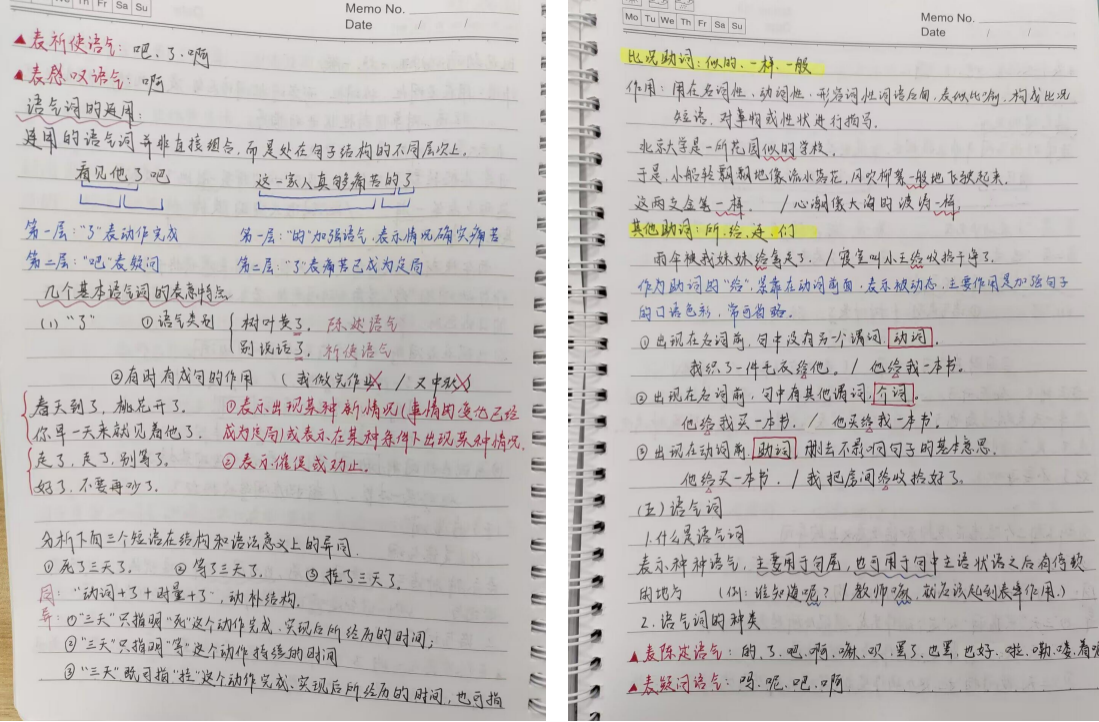 We Th Fr Sa Su
Memo No.
Date / /
▲表祈使语气：吧、了、啊
▲表感叹语气：啊
语气词的连用：
连用的语气词并非直接组合，而是处在句子结构的不同层次上。
看见他了吧 这一家人真够痛苦的了
第一层："了"表动作完成 第一层："的"加强语气，表示情况确实痛苦
第二层："吧"表疑问 第二层："了"表痛苦已成为定局
几个基本语气词的表意特点
(1) "了" ①语气类别 树叶黄了。陈述语气
别说话了。祈使语气
②有时有成句的作用 （我做完作业 / 又中秋）
春天到了，桃花开了。 ①表示出现某种新情况（事情的变化已经
你早一天来就见着他了。 成为定局）或表示在某种条件下出现某种情况。
走了，走了，别等了。 ②表示催促或劝止。
好了，不要再吵了。
分析下面三个短语在结构和语法意义上的异同。
①死了三天了。 ②等了三天了。 ③挂了三天了。
同："动词+了+时量+了"，动补结构。
异：①"三天"只指明"死"这个动作完成、实现后所经历的时间；
②"三天"只指明"等"这个动作持续的时间
③"三天"既可指"挂"这个动作完成、实现后所经历的时间，也可指
Mo Tu We Th Fr Sa Su
Memo No.
Date / /
比况助词：似的、一样、一般
作用：用在名词性、动词性、形容词性词语后面，表似比喻，构成比况
短语，对事物或性状进行描写。
北京大学是一所花园似的学校。
于是，小船轻飘飘地像流水落花，风吹柳絮一般地飞驶起来。
这两支金笔一样。 / 心潮像大海的波涛一样。
其他助词：所、给、连、们
雨伞被我妹妹给拿走了。/ 寝室叫小王给收拾干净了。
作为助词的"给"，紧靠在动词前面，表示被动态，主要作用是加强句子
的口语色彩，常可省略。
①出现在名词前，句中没有另一个谓词，动词。
我织了一件毛衣给他。 / 他给我一本书。
②出现在名词前，句中有其他谓词，介词。
他给我买一本书。 / 他买给我一本书。
③出现在动词前，助词，删去不影响句子的基本意思。
他给买一本书。/ 我把房间给收拾好了。
(五) 语气词
1.什么是语气词
表示种种语气，主要用于句尾，也可用于句中主语状语之后有停顿
的地方 （例：谁知道呢？ / 教师嘛，就应该起到表率作用。）
2.语气词的种类
▲表陈述语气：的、了、吧、啊、嘛、呗、罢了、也罢、也好、啦、嘞、喽、着呢
▲表疑问语气：吗、呢、吧、啊